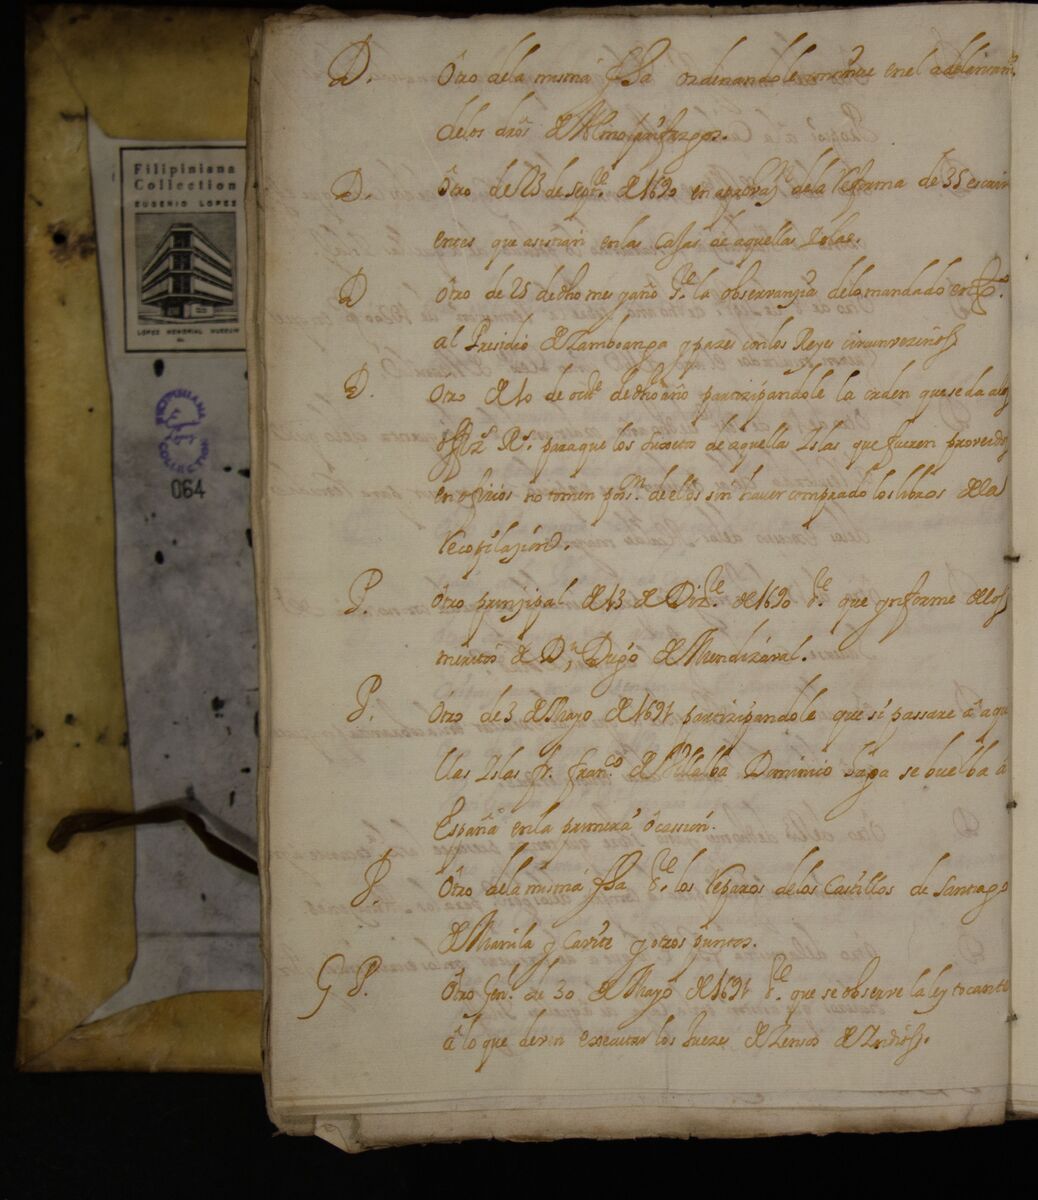 Filipiniana
Collection
EUGENIO LOPEZ
LOPEZ MEMORIAL MUSEUM
FILIPINIANA
COLLECTION
064
D. Otro dela misma fha ordenandole enel adelantam.to
delos dros de Almojarifazgos.
D. Otro de 23 de sept.e de 1690 en aprovaz.n dela Reforma de 35 escrivi
entes que asistian en las Casas de aquellas Islas.
D Otro de 25 de dho mes y año s.re la observanzia delo mandado en
al Presidio de Zamboanga y pazes con los Reyes circunvezinos
D. Otro de 10 de oct.e de dho año partizipandole la orden que se da a los
off.s R.s para que los de aquellas Islas que fueren proveidos
en ofizios no tomen pos.n de ellos sin haver comprado los libros de la
Recopilazion.
P. Otro prinzipal de 13 de Diz.re de 1690 s.re que ynforme de los
meritos de D.n Diego de Mendizaval.
P. Otro de 3 de Mayo de 1691 partizipandole que si passare â aque
llas Islas fr. fran.co de Villalba Dominico haga se buelba â
España en la primera ôcassion.
P. Otro dela misma fha s.re los Reparos delos Castillos de Santiago
de Manila y Cavite y otros puntos.
G P. Otro Gen.l de 30 de Mayo de 1691 s.re que se observe la ley tocante
â lo que deven executar los Juezes de de Indios.